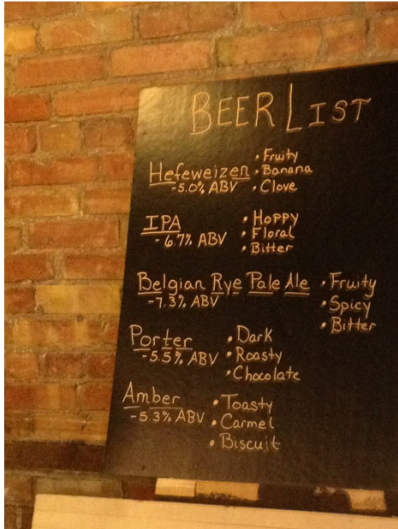 BEER LIST
Hefeweizen
-5.0% ABV
• Fruity
• Banana
• Clove
IPA
-6.7% ABV
• Hoppy
• Floral
• Bitter
Belgian Rye Pale Ale
-7.3% ABV
• Fruity
• Spicy
• Bitter
Porter
-5.5% ABV
• Dark
• Roasty
• Chocolate
Amber
-5.3% ABV
• Toasty
• Carmel
• Biscuit